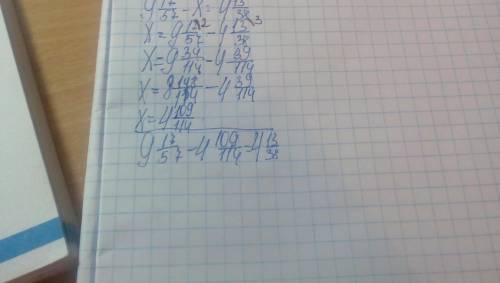 9 17/57 - x = 4 13/38
x = 9 17/57 ² - 4 13/38 ³
x = 9 34/114 - 4 39/114
x = 8 148/114 - 4 39/114
x = 4 109/114
9 17/57 - 4 109/114 = 4 13/38